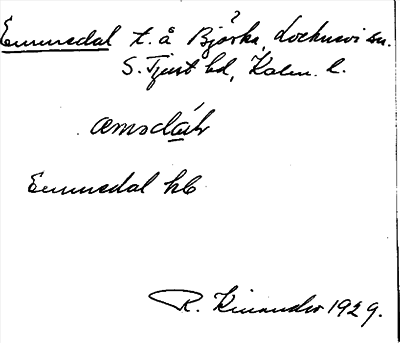 Emmsdal t. å Björka, Locknevi sn.
S. Tjust hd, Kalm. l.
æmsdáḷ
Emmsdal hb
R. Kinander 1929.